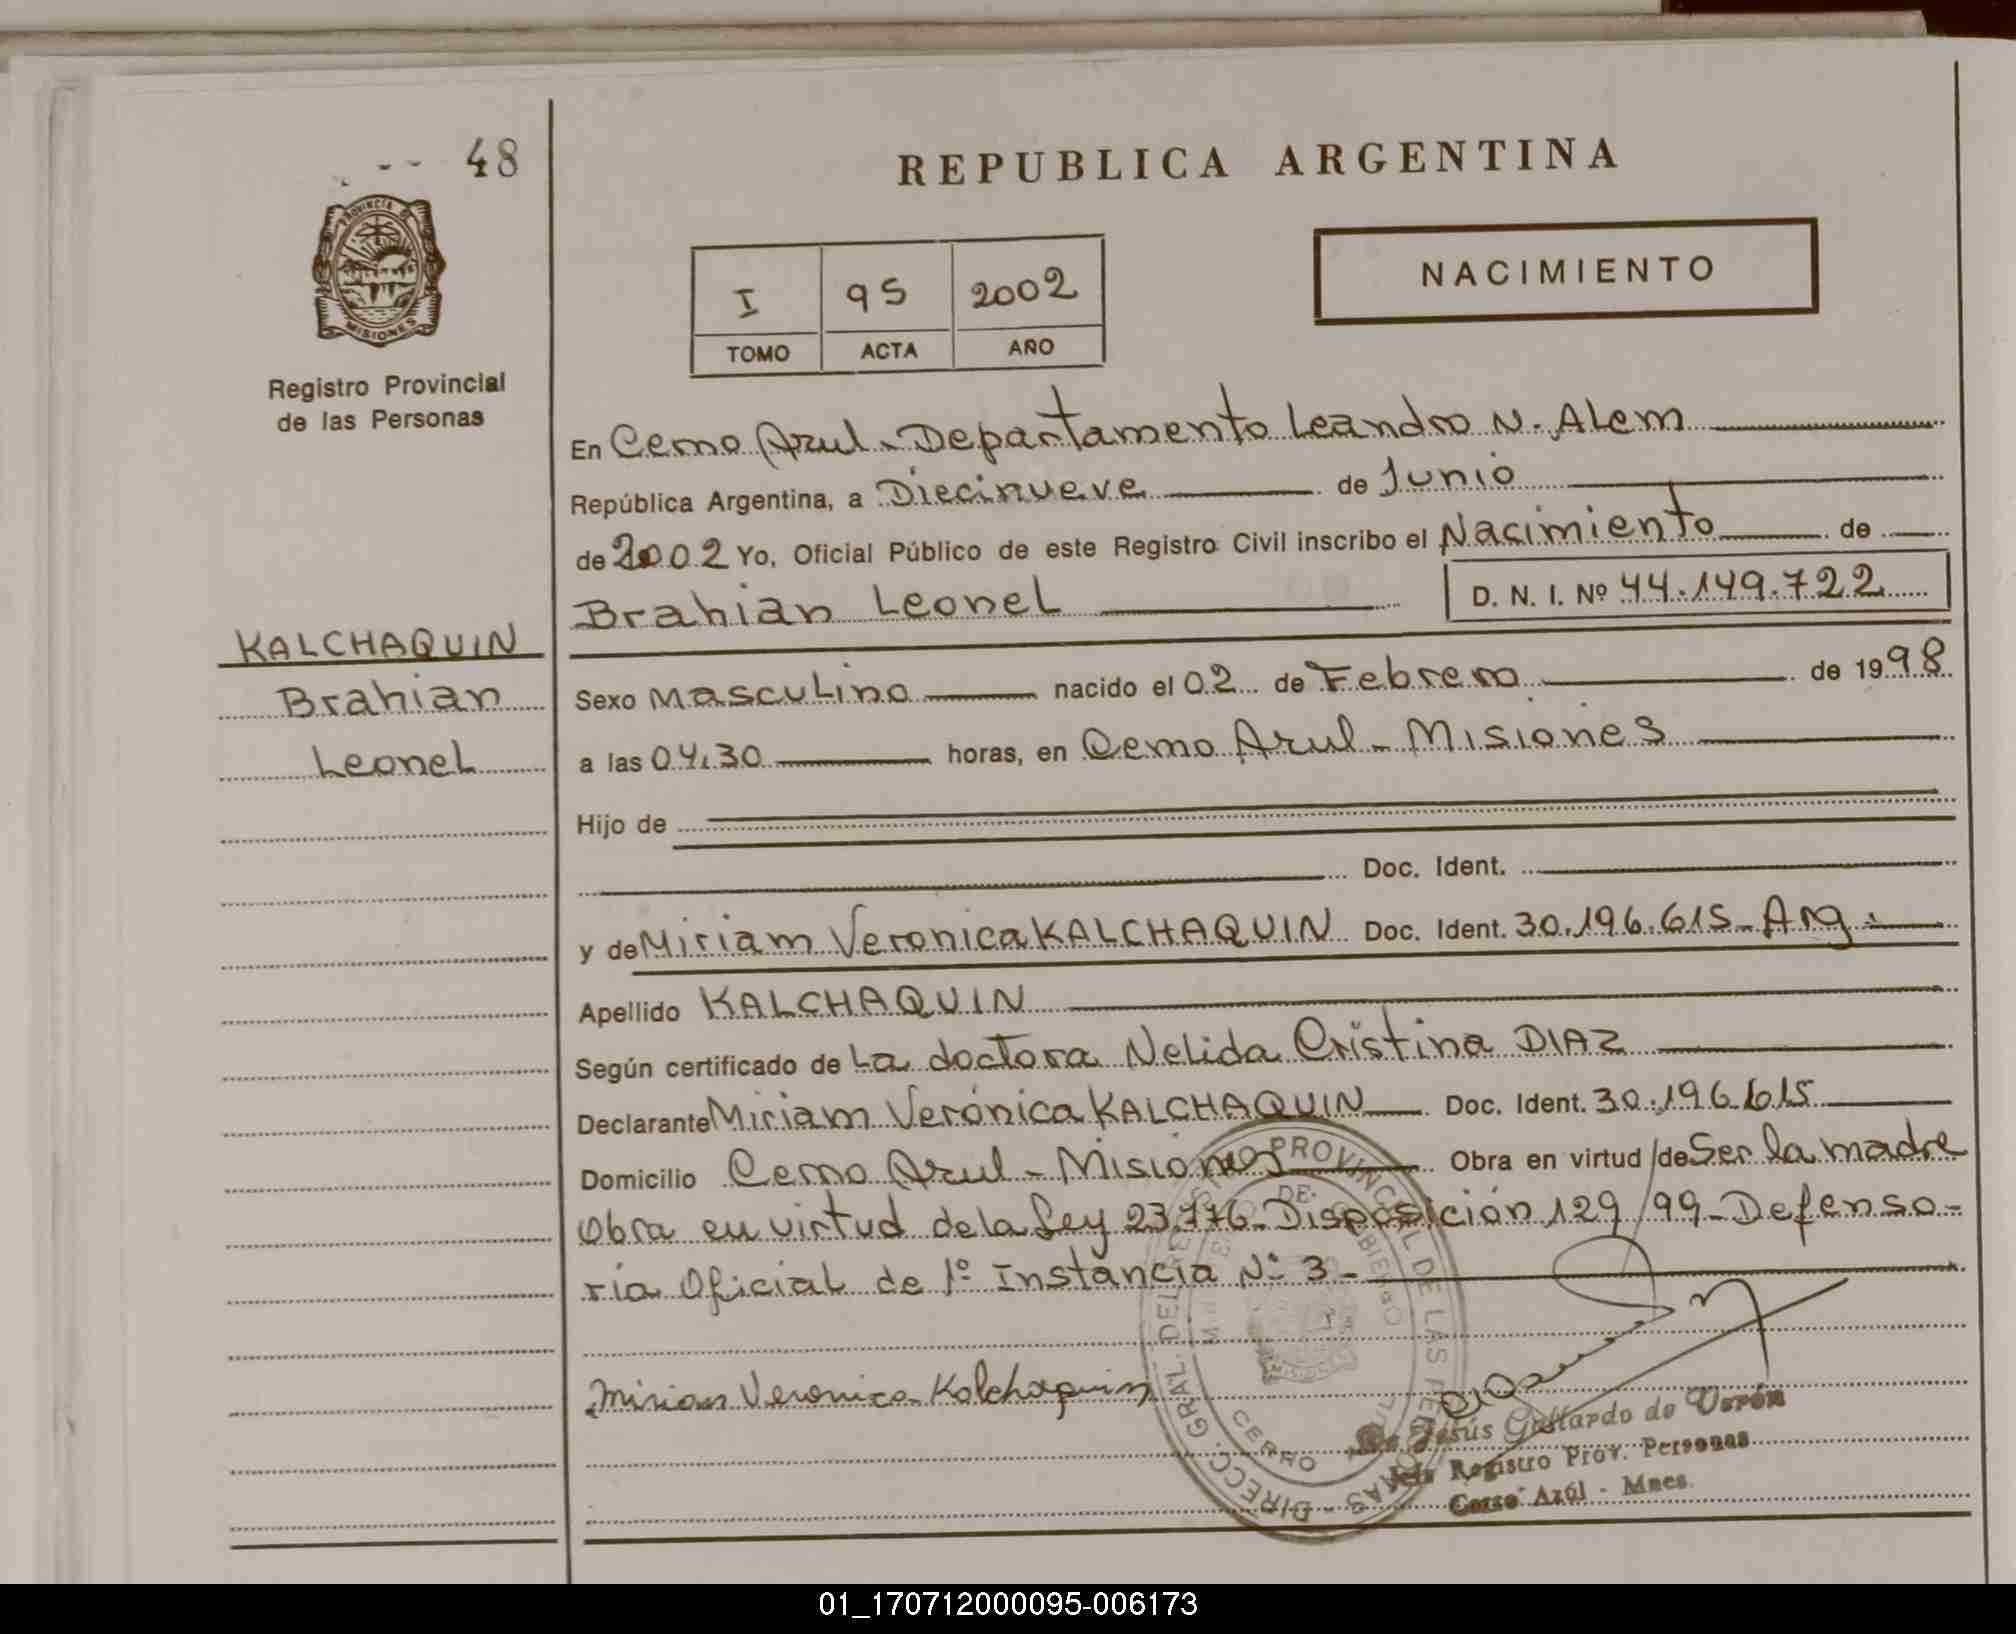 48
REPUBLICA ARGENTINA
PROVINCIA DE
MISIONES
Registro Provincial
de las Personas
I 95 2002
TOMO ACTA AÑO
NACIMIENTO
En Cerro Azul - Departamento Leandro N. Alem
República Argentina, a Diecinueve de Junio
de 2002 Yo, Oficial Público de este Registro Civil inscribo el Nacimiento de
Brahian Leonel D. N. I. Nº 44.149.722
KALCHAQUIN
Brahian
Leonel
Sexo Masculino nacido el 02 de Febrero de 1998
a las 04.30 horas, en Cerro Azul - Misiones
Hijo de
Doc. Ident.
y de Miriam Veronica KALCHAQUIN Doc. Ident. 30.196.615 - Arg.
Apellido KALCHAQUIN
Según certificado de La doctora Nelida Cristina DIAZ
Declarante Miriam Verónica KALCHAQUIN Doc. Ident. 30.196.615
Domicilio Cerro Azul - Misiones Obra en virtud de Ser la madre
Obra en virtud de la Ley 23.776 - Disposición 129/99 - Defenso-
ría Oficial de 1º Instancia Nº 3 -
Mirian Veronica Kalchaquin
DIRECC. GRAL. DEL REGISTRO PROVINCIAL DE LAS PERSONAS
CERRO AZUL
Jesús Gallardo de Verón
Jefe Registro Prov. Personas
Cerro Azúl - Mnes.
01_170712000095-006173